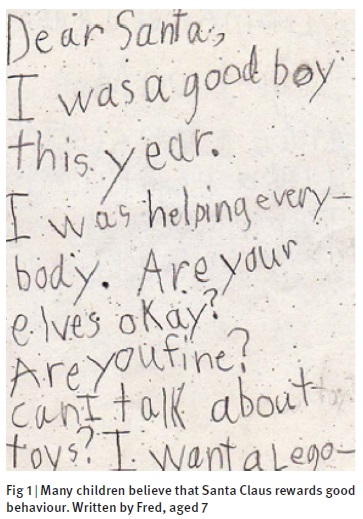 Dear Santa,
I was a good boy
this year.
I was helping every-
body. Are your
elves okay?
Are you fine?
can I talk about
toys? I want a Lego-
Fig 1 | Many children believe that Santa Claus rewards good
behaviour. Written by Fred, aged 7